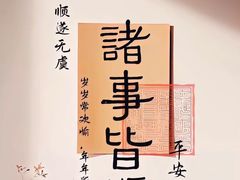 顺遂无虞
諸事皆
岁岁常欢愉
年年
平安